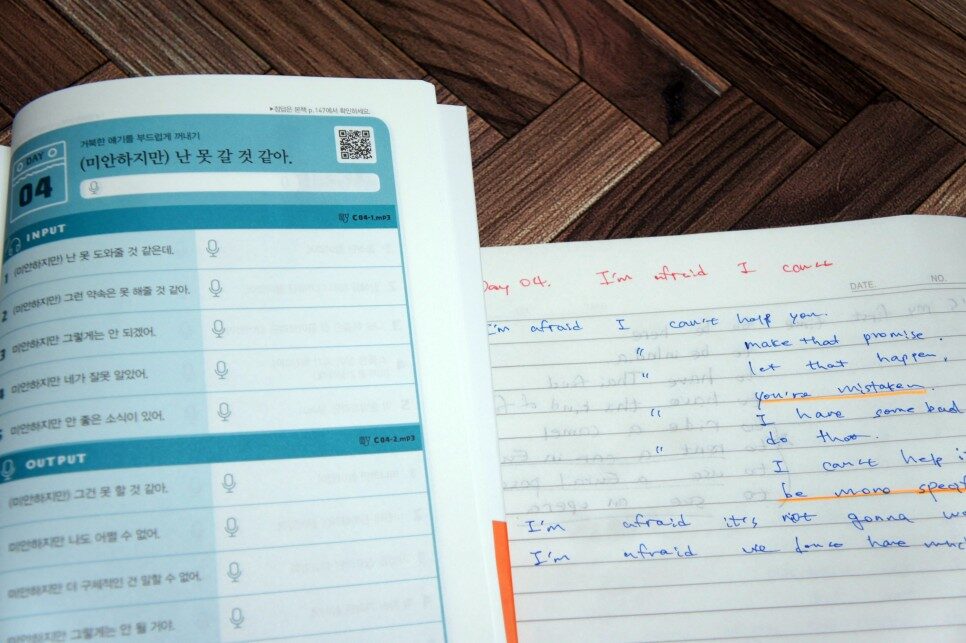 ▶정답은 본책 p.147에서 확인하세요.
DAY
04
거북한 얘기를 부드럽게 꺼내기
(미안하지만) 난 못 갈 것 같아.
C 04-1.mp3
INPUT
1 (미안하지만) 난 못 도와줄 것 같은데.
2 (미안하지만) 그런 약속은 못 해줄 것 같아.
3 미안하지만 그렇게는 안 되겠어.
4 미안하지만 네가 잘못 알았어.
5 미안하지만 안 좋은 소식이 있어.
C 04-2.mp3
OUTPUT
(미안하지만) 그건 못 할 것 같아.
미안하지만 나도 어쩔 수 없어.
미안하지만 더 구체적인 건 말할 수 없어.
미안하지만 그렇게는 안 될 거야.
Day 04. I'm afraid I can't
DATE. NO.
I'm afraid I can't help you.
" make that promise.
" let that happen.
" you're mistaken.
" I have some bad
" do that.
I can't help it
be more specif
I'm afraid it's not gonna
I'm afraid we have